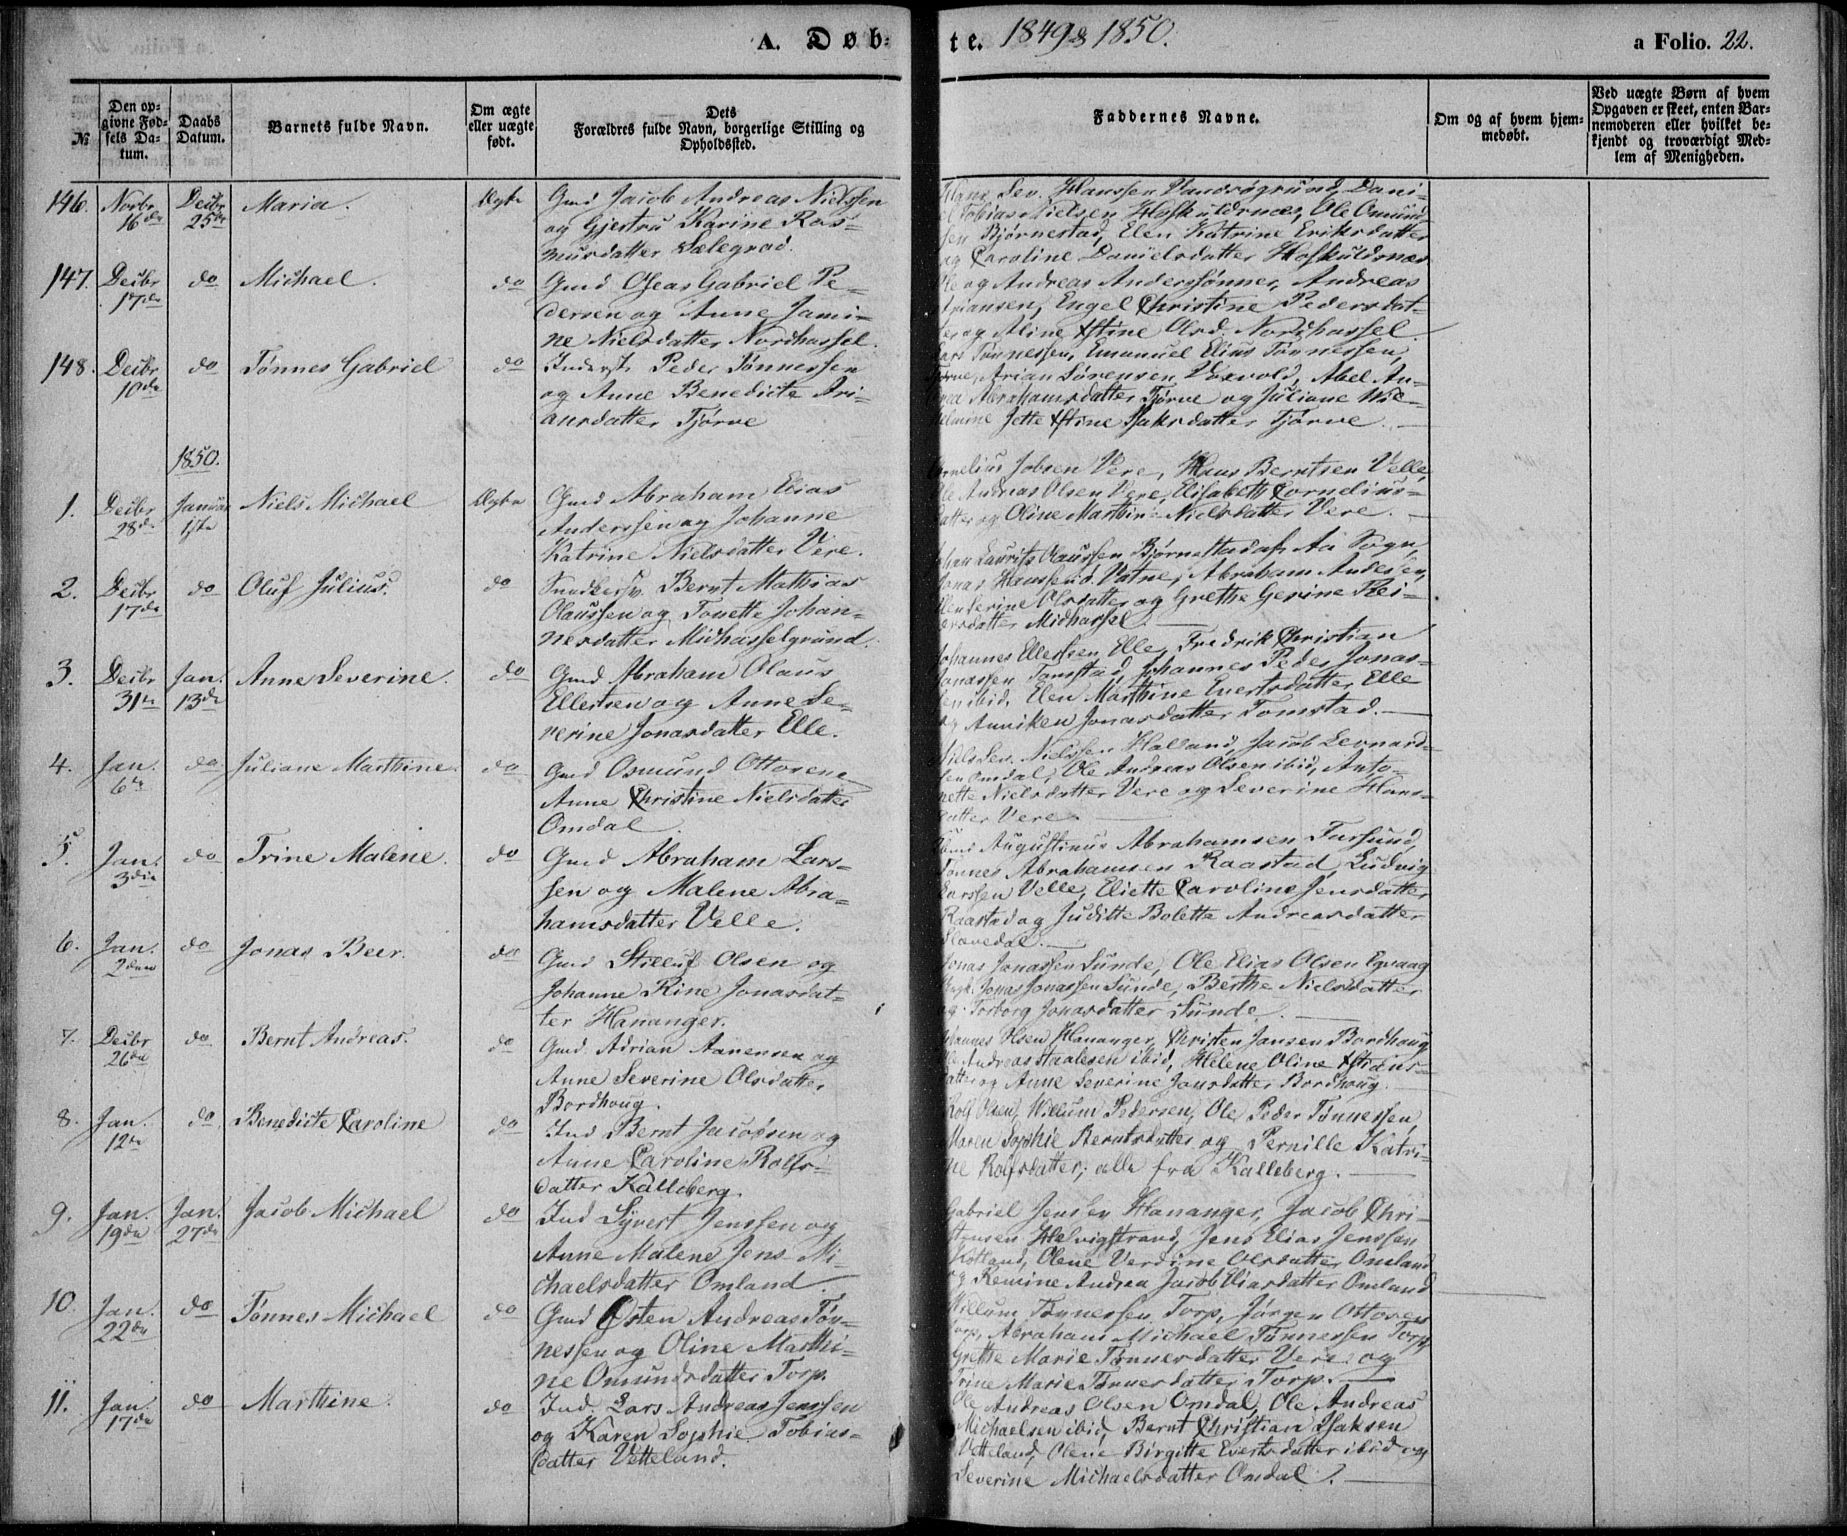 A. Døb-
te. 1849 & 1850.
a Folio. 22.
№
Den op-
givne Fød-
sels Da-
tum.
Daabs
Datum.
Barnets fulde Navn.
Om ægte
eller uægte
født.
Dets
Forældres fulde Navn, borgerlige Stilling og
Opholdssted.
Faddernes Navne.
Om og af hvem hjem-
medøbt.
Ved uægte Børn af hvem
Opgaven er skeet, enten Bar-
nemoderen eller hvilket be-
kjendt og troværdigt Med-
lem af Menigheden.
146. Novbr 16de Decbr 25de Maria. Ægte Gmd Jacob Andreas Nielssen
og Gjestru Karine Ras-
musdatter Sælegrod.
Sev. Hanssen Vandsøgrund, Dani-
Tobias Nielsen Hofskuldsnes, Ole Omund-
sen Bjørnestad, Elen Katrine Eriksdatter
og Caroline Danielsdatter Hofskuldsnes
147. Decbr 17de do Michael. do Gmd Oseas Gabriel Pe-
dersen og Anne Jami-
ne Nielsdatter Nordhassel.
Ole og Andreas Anderssønner, Andreas
Engel Christine Pedersdat-
ter og Aline Xstine Olsd. Nordhassel.
148. Decbr 10de do Tønnes Gabriel do Inderst Peder Tønnessen
og Anne Benedicte Ari-
ansdatter Tjørve
Lars Tønnessen, Emanuel Elius Tønnessen
Tjørve, Arian Sørensen Voxvold, Abel An-
Abrahamsdatter Tjørve og Juliane Wil-
helmine Jette Xstine Isaksdatter Tjørve.
1850.
1. Decbr 28de Januar 1ste Niels Michael Ægte Gmd Abraham Elias
Anderssen og Johanne
Katrine Nielsdatter Vere.
Cornelius Jobsen Vere, Hans Berntsen Velle,
Ole Andreas Olsen Vere, Elisabeth Cornelius-
datter og Oline Marthine Nielsdatter Vere.
2. Decbr 17de do Oluf Julius. do Bernt Mathias
Olaussen og Tonette Johan-
nesdatter Midhasselgrund.
Johan Laurits Olaussen Bjørnestad af Aa Sogn,
Jonas Hanssen Vatne, Abraham Andersen,
Olsdatter og Grethe Gerine Rei-
ersdatter Midhassel.
3. Decbr 31te Jan. 13de Anne Severine. do Gmd Abraham Olaus
Ellertsen og Anne Se-
verine Jonasdatter Elle.
Johannes Ellertsen Elle, Fredrik Christian
Jonassen Tomstad, Johannes Peder Jonas-
sen ibid, Elen Marthine Evertsdatter Elle
og Anniken Jonasdatter Tomstad.
4. Jan. 6te do Juliane Marthine. do Gmd Osmund Ottosen
Anne Christine Nielsdatter
Omdal.
Niels Sev. Nielssen Halland, Jacob Leonard-
sen Omdal, Ole Andreas Olsen ibid, Anto-
nette Nielsdatter Vere og Severine Hans-
datter Vere
5. Jan. 3die do Trine Malene. do Gmd Abraham Lars-
sen og Malene Abra-
hamsdatter Velle.
Augustinus Abrahamsen Farsund,
Tønnes Abrahamsen Raastad, Ludvig
Larssen Velle, Eliette Caroline Jensdatter
Raastad og Juditte Bolette Andreasdatter
6. Jan. 2den do Jonas Beer. do Gmd Stilluf Olsen og
Johanne Rine Jonasdat-
ter Hananger.
Jonas Jonassen Sunde, Ole Elias Olsen Egvaag
Jonas Jonassen Sunde, Berthe Nielsdatter
og Torborg Jonasdatter Sunde.
7. Decbr 26de do Bernt Andreas. do Gmd Adrian Aanensen og
Anne Severine Olsdatter
Bordhoug.
Johannes Olsen Hananger, Christen Jansen Bordhoug
Ole Andreas Staalesen ibid, Helene Oline Xstians-
datter og Anne Severine Jansdatter Bordhoug.
8. Jan. 12te do Benedicte Caroline do Ind Bernt Jacobsen og
Anne Caroline Rolfs-
datter Kalleberg.
Rolf Olsen, Willum Pedersen, Ole Peder Tønnessen,
Maren Sophie Berntsdatter og Pernille Katri-
ne Rolfsdatter, alle fra Kalleberg.
9. Jan. 19de Jan. 27de Jacob Michael do Ind Syvert Jenssen og
Anne Malene Jens Mi-
chaelsdatter Omland.
Gabriel Jensen Hananger, Jacob Chri-
stensen Helvigstrand, Jens Elias Jenssen
Kotland, Olene Verdine Olsdatter Omland
og Remine Andrea Jacob Eliasdatter Omland
10. Jan. 22de do Tønnes Michael do Gmd Østen Andreas Tøn-
nessen og Oline Marthi-
ne Omundsdatter Torp.
Willum Tønnessen Torp, Jørgen Ottosen
Torp, Abraham Michael Tønnessen Torp
Grethe Marie Tønnesdatter Vere og
Trine Marie Tønnesdatter Torp.
11. Jan. 17de do Marthine. do Ind. Lars Andreas Jenssen
og Karen Sophie Tobias-
datter Vetteland.
Ole Andreas Olsen Omdal, Ole Andreas
Michaelsen ibid, Bernt Christian Isaksen
Vetteland, Olene Birgitte Evertsdatter ibid og
Severine Michaelsdatter Omdal.